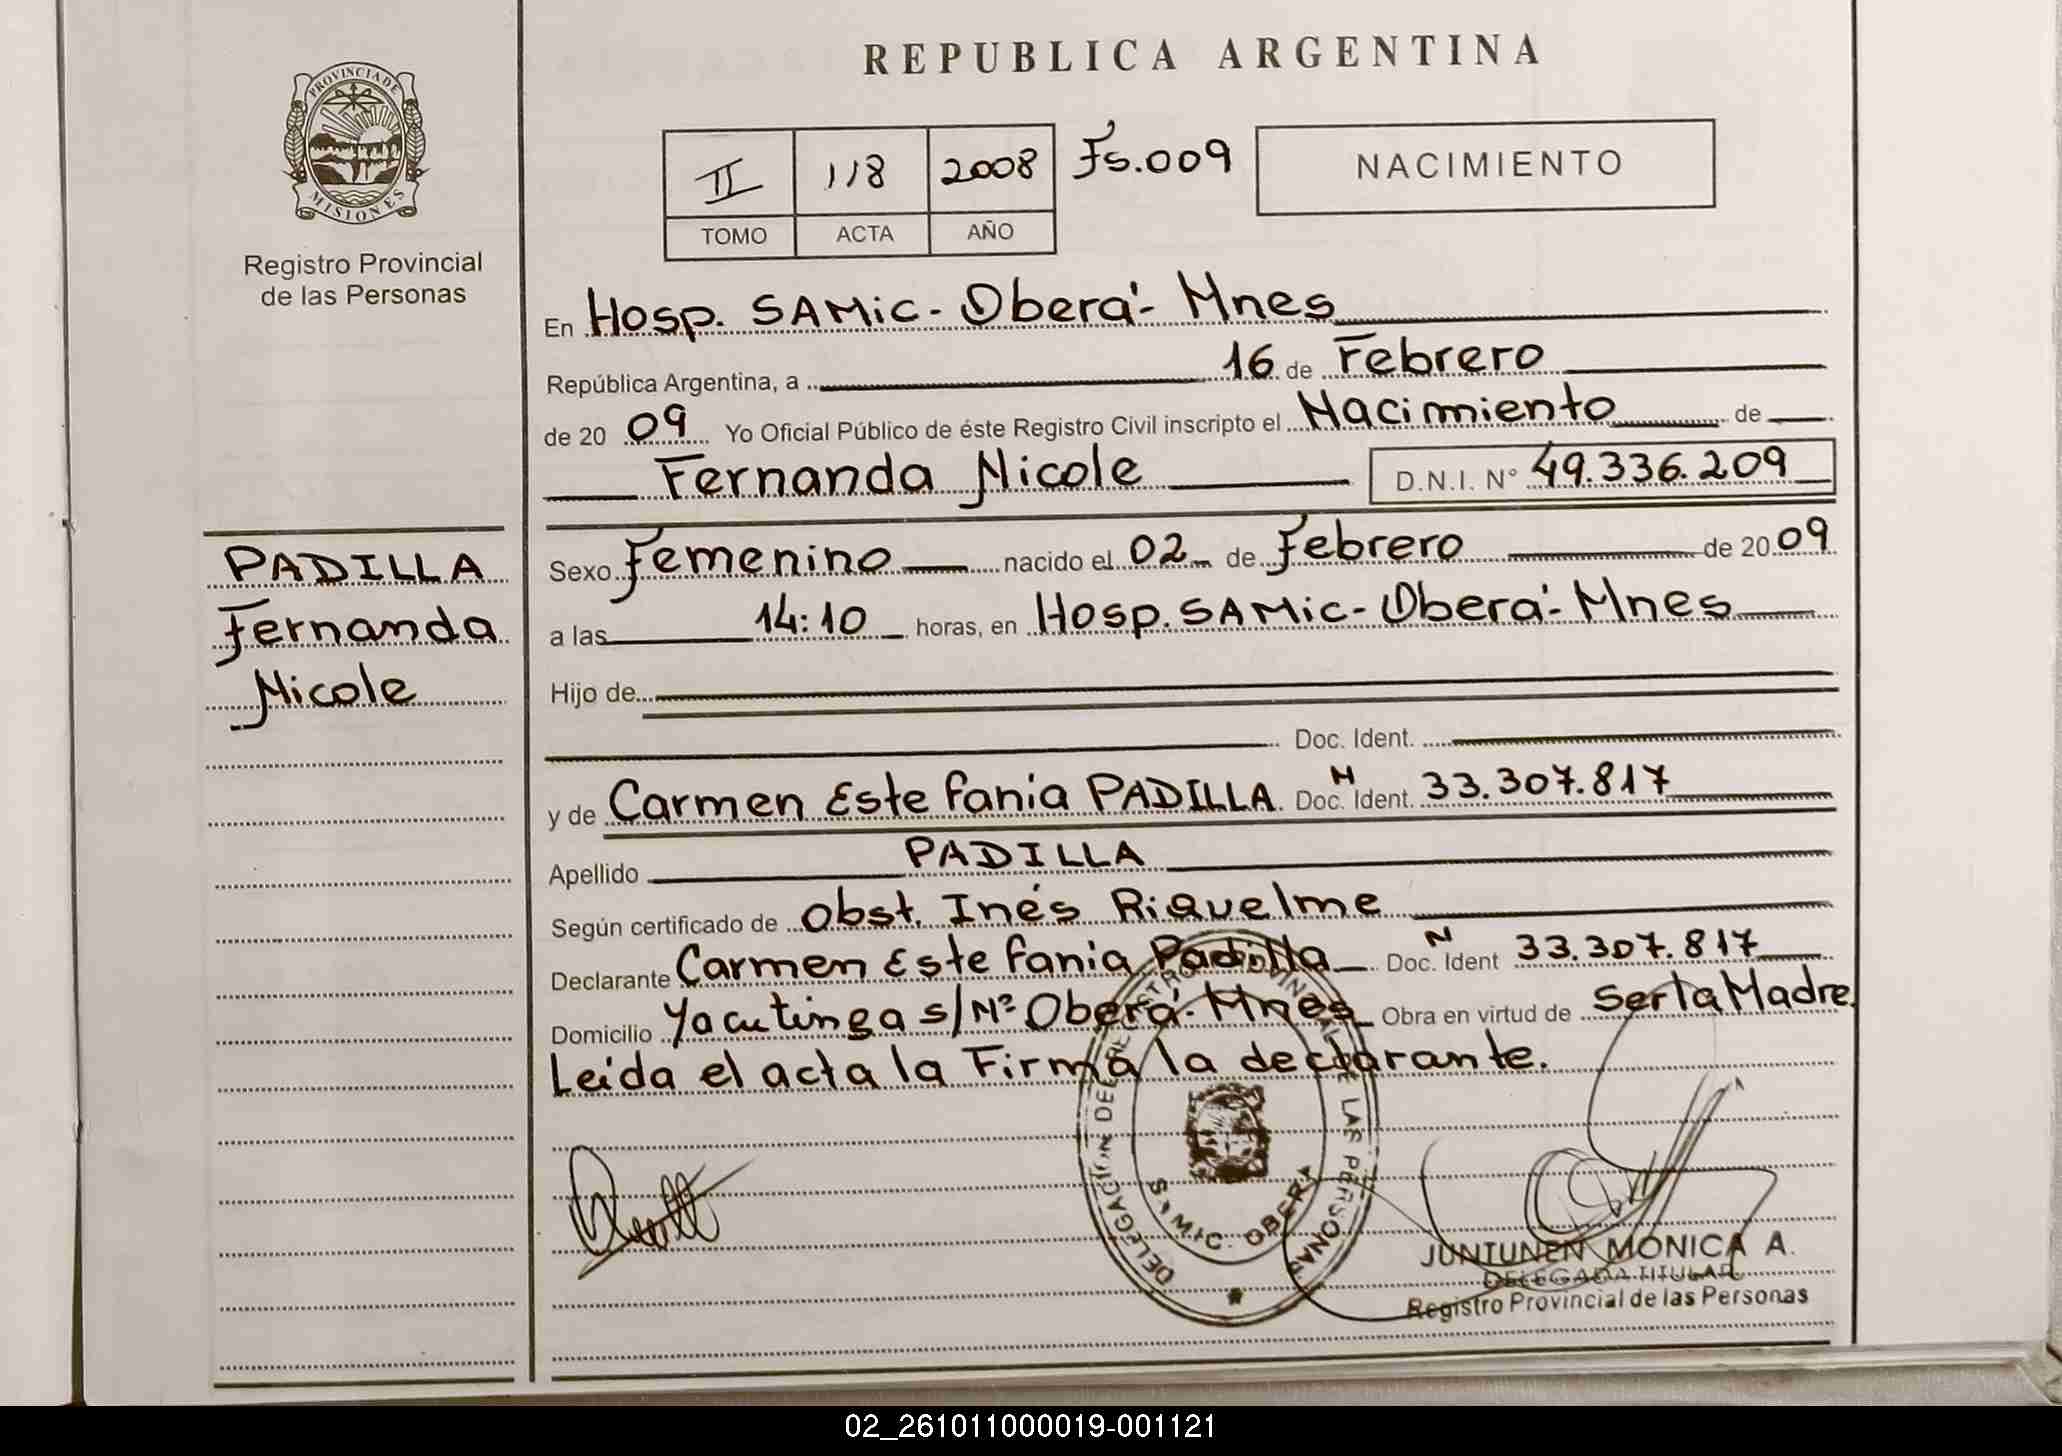 REPUBLICA ARGENTINA
PROVINCIA DE
MISIONES
Registro Provincial
de las Personas
II 118 2008 Fs.009
TOMO ACTA AÑO
NACIMIENTO
En Hosp. SAMic - Oberá - Mnes
República Argentina, a 16 de Febrero
de 20 09 Yo Oficial Público de éste Registro Civil inscripto el Nacimiento de
Fernanda Nicole D.N.I. N° 49.336.209
PADILLA
Fernanda
Nicole
Sexo Femenino nacido el 02 de Febrero de 20 09
a las 14:10 horas, en Hosp. SAMic - Oberá - Mnes
Hijo de
Doc. Ident.
y de Carmen Estefanía PADILLA Doc. N Ident. 33.307.817
Apellido PADILLA
Según certificado de Obst. Inés Riquelme
Declarante Carmen Estefanía Padilla Doc. N Ident 33.307.817
Domicilio Yacutinga s/Nº Oberá - Mnes Obra en virtud de ser la Madre.
Leída el acta la Firma la declarante.
DELEGACION DEL REGISTRO PROVINCIAL DE LAS PERSONAS
SAMIC - OBERA
JUNTUNEN MONICA A.
DELEGADA TITULAR
Registro Provincial de las Personas
02_261011000019-001121